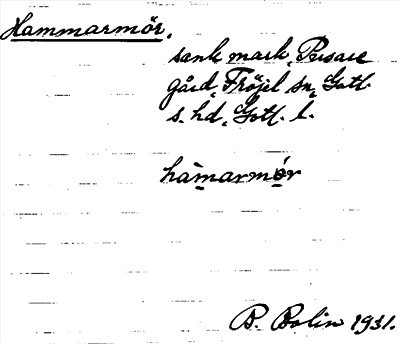 Hammarmör,
sank mark, Pusare
gård, Fröjel sn, Gotl.
s. hd, Gotl. l.
hàmarmór
B. Bolin 1931.